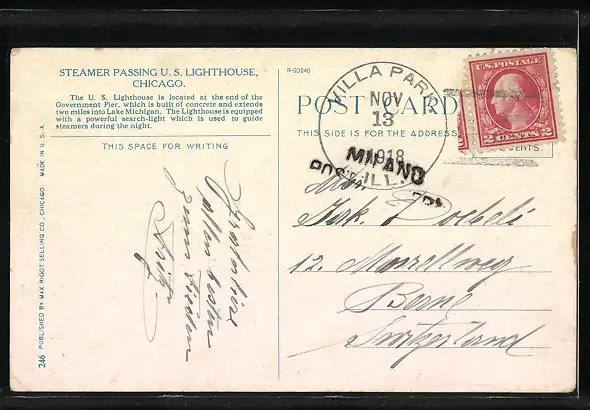 STEAMER PASSING U. S. LIGHTHOUSE,
CHICAGO.
The U. S. Lighthouse is located at the end of the
Government Pier, which is built of concrete and extends
two miles into Lake Michigan. The Lighthouse is equipped
with a powerful search-light which is used to guide
steamers during the night.
THIS SPACE FOR WRITING
R-50246
POST CARD
THIS SIDE IS FOR THE ADDRESS
VILLA PARK
NOV
13
1918
ILL.
MILANO
U.S. POSTAGE
2 CENTS 2
CENTS.
12.
Berne
Switzerland
Fritz
246 PUBLISHED BY MAX RIGOT SELLING CO., CHICAGO. MADE IN U. S. A.